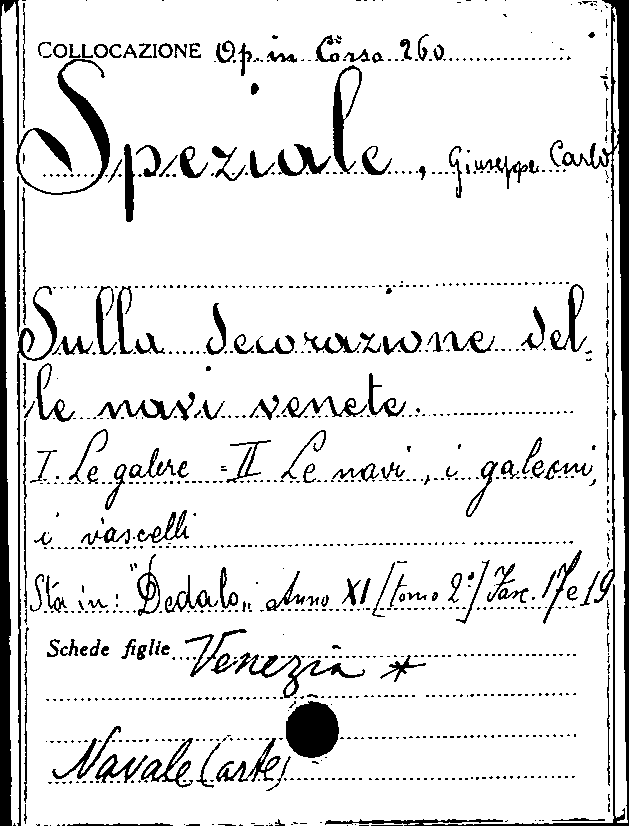 COLLOCAZIONE Op. in Corso 260
Speziale, Giuseppe Carlo
Sulla decorazione del-
le navi venete.
I. Le galere = II Le navi, i galeoni,
i vascelli
Sta in: "Dedalo" Anno XI [tomo 2º] Fasc. 17 e 19
Schede figlie Venezia *
Navale (arte)